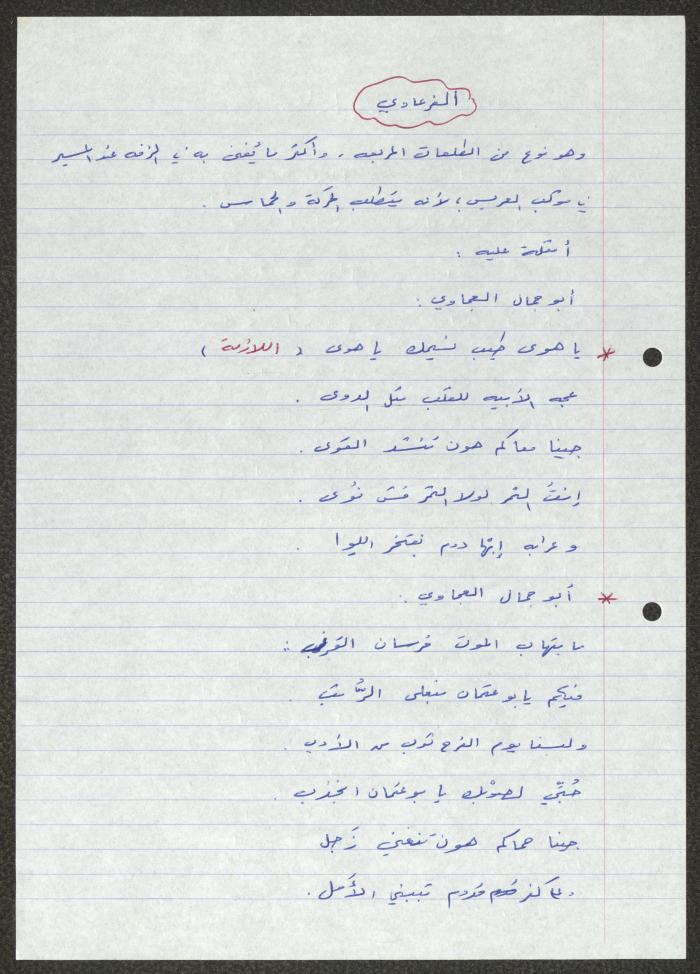 الفرعاوي
وهو نوع من الطلعات المربعه . وأكثر ما يُغنى به في الزفه عند المسير
في موكب العريس ، لأنه يتطلب الحركة والحماس .
أمثلة عليه :
أبو جمال العجاوي :
* يا هوى طيب نسيمك يا هوى ( اللازمة )
للقلب مثل الدوى .
جينا معاكم هون تنشد القوى .
إنتُ التمر لولا التمر فش نوى .
و عرابه إبها دوم نفتخر الليوا .
* أبو جمال العجاوي :
ما بتهاب الموت فرسان العرب :
فيكم يا بو عثمان منعلى الرُّتب .
ولبسنا يوم الفرح ثوب من الأدب .
حُبّي لصوْبك يا بو عثمان انجذب .
جينا حماكم هون تنغني زَجل
قدوم تبني الأمل .